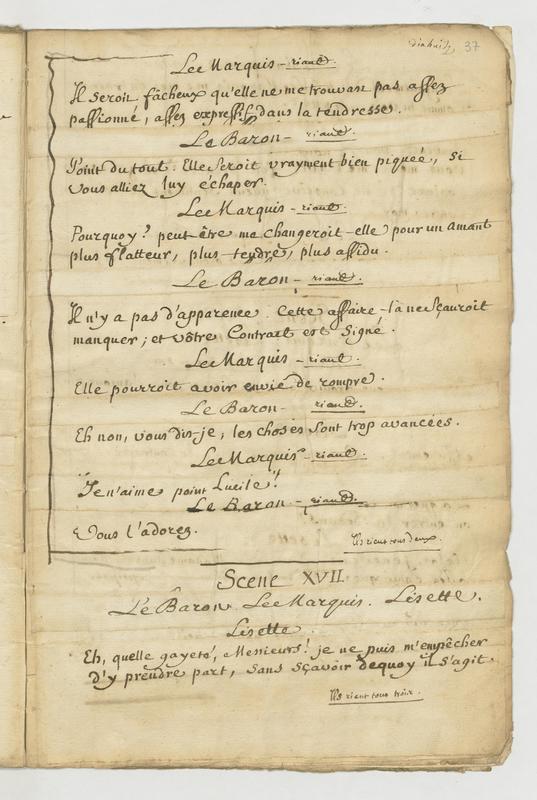 37
Le Marquis - riant.
Il seroit fâcheux qu'elle ne me trouvast pas assez
passionné, assez expressif dans la tendresse.
Le Baron - riant.
Point du tout. Elle seroit vrayment bien piquée, si
vous alliez luy échaper.
Le Marquis - riant.
Pourquoy? peut-être me changeroit-elle pour un amant
plus flatteur, plus-tendre, plus assidu.
Le Baron - riant.
Il n'y a pas d'apparence. Cette affaire-la ne sçauroit
manquer; et vôtre Contract est signé.
Le Marquis - riant.
Elle pourroit avoir envie de rompre.
Le Baron - riant.
Eh non, vous dis-je, les choses sont trop avancées.
Le Marquis - riant.
Je n'aime point Lucile!
Le Baron - riant.
Vous l'adorez.
Ils rient tous deux.
Scene XVII.
Le Baron. Le Marquis. Lisette.
Lisette.
Eh, quelle gayeté, Messieurs! je ne puis m'empêcher
d'y prendre part, sans sçavoir dequoy il s'agit.
Ils rient tous trois.